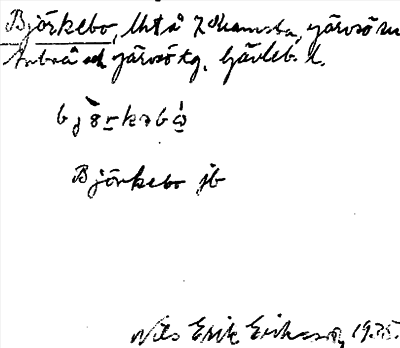 Björkebo, lht å Hamsta, Järvsö sn
Arbrå och Järvsö tg. Gävleb. l.
Björkebo jb
Nils Erik Eriksson, 1935.